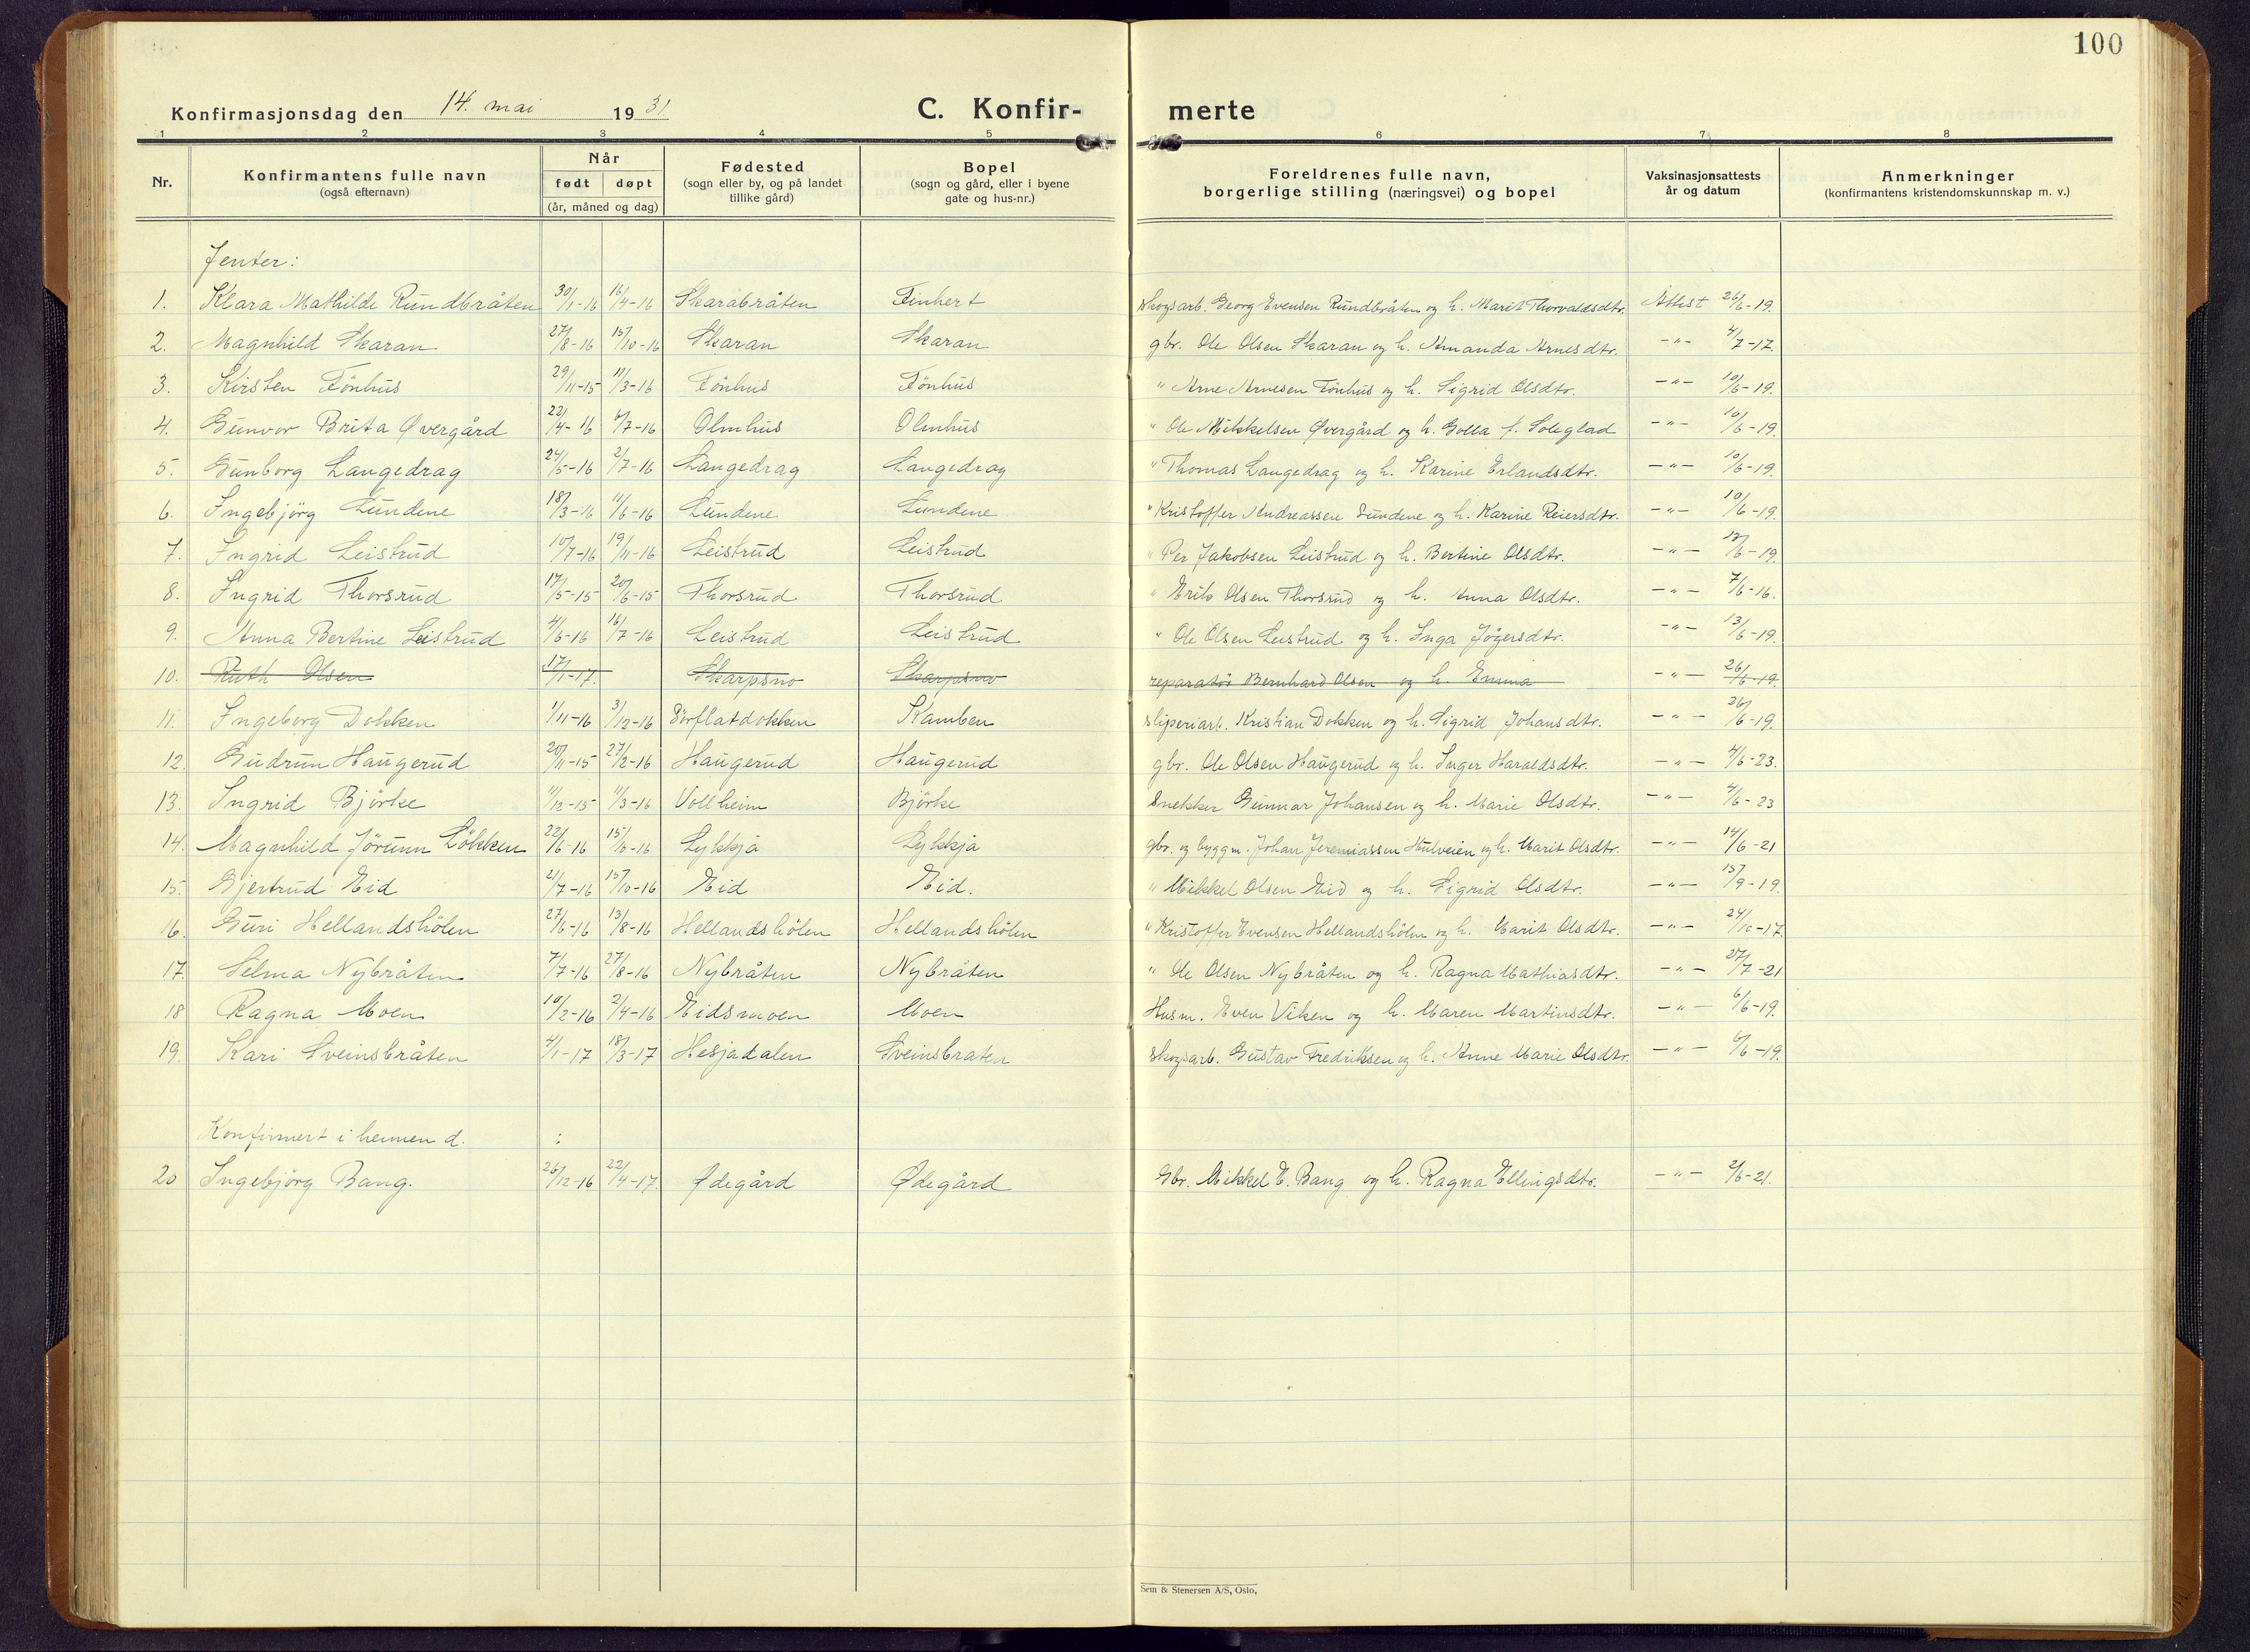 100
Konfirmasjonsdag den 14. mai 1931 C. Konfir- merte
1 2 3 4 5 6 7 8
Nr. Konfirmantens fulle navn (også efternavn) Når født døpt (år, måned og dag) Fødested (sogn eller by, og på landet tillike gård) Bopel (sogn og gård, eller i byene gate og hus-nr.) Foreldrenes fulle navn, borgerlige stilling (næringsvei) og bopel Vaksinasjonsattests år og datum Anmerkninger (konfirmantens kristendomskunnskap m. v.)
Jenter:
1. Klara Mathilde Rundbråten 30/1-16 16/4-16 Skarabråten Finhert skogsarb. Georg Evensen Rundbråten og h. Marit Thorvaldsdtr. Attest 26/6-19.
2. Magnhild Skaran 27/8-16 15/10-16 Skaran Skaran gbr. Ole Olsen Skaran og h. Amanda Arnesdtr. -"- 4/7-17.
3. Kirsten Fönhus 29/11-15 19/3-16 Fönhus Fönhus " Arne Arnesen Fönhus og h. Sigrid Olsdtr. -"- 10/6-19.
4. Gunvor Brita Øvergård 22/4-16 6/7-16 Olmhus Olmhus " Ole Mikkelsen Øvergård og h. Golla f. Soleglad -"- 10/6-19.
5. Gunborg Langedrag 24/5-16 2/7-16 Langedrag Langedrag " Thomas Langedrag og h. Karine Erlandsdtr. -"- 10/6-19.
6. Ingebjörg Lundene 18/3-16 11/6-16 Lundene Lundene " Kristoffer Andreassen Lundene og h. Karine Reiersdtr. -"- 10/6-19.
7. Ingrid Leistrud 10/7-16 19/11-16 Leistrud Leistrud " Per Jakobsen Leistrud og h. Bertine Olsdtr. -"- 13/6-19.
8. Ingrid Thorsrud 17/5-15 20/6-15 Thorsrud Thorsrud " Erik Olsen Thorsrud og h. Anna Olsdtr. -"- 7/6-16.
9. Anna Bertine Leistrud 4/6-16 16/7-16 Leistrud Leistrud " Ole Olsen Leistrud og h. Inga Jögersdtr. -"- 13/6-19.
10. Ruth Olsen 17/1-17. Skarpsno Skarpsno reparatör Bernhard Olsen og h. Emma -"- 26/6-19.
11. Ingeborg Dokken 1/11-16 3/12-16 Sörflatdokken Kamben sliperiarb. Kristian Dokken og h. Sigrid Johansdtr. -"- 26/6-19.
12. Gudrun Haugerud 20/11-15 27/2-16 Haugerud Haugerud gbr. Ole Olsen Haugerud og h. Inger Haraldsdtr. -"- 4/6-23.
13. Ingrid Björke 11/12-15 11/3-16 Vollheim Björke Snekker Gunnar Johansen og h. Marie Olsdtr. -"- 4/6-23
14. Magnhild Jörunn Lökken 22/6-16 15/6-16 Lykkja Lykkja gbr. og byggm. Johan Jeremiassen Hulveien og h. Marit Olsdtr. -"- 14/6-21
15. Gjertrud Eid 21/7-16 15/10-16 Eid Eid. " Mikkel Olsen Eid og h. Sigrid Olsdtr. -"- 15/9-19.
16. Guri Hellandshölen 27/6-16 13/8-16 Hellandshölen Hellandshölen " Kristoffer Evensen Hellandshölen og h. Marit Olsdtr. -"- 24/10-17.
17. Selma Nybråten 7/7-16 27/8-16 Nybråten Nybråten " Ole Olsen Nybråten og h. Ragna Mathiasdtr. -"- 27/7-21
18 Ragna Moen 10/2-16 2/4-16 Eidsmoen Moen Husm. Even Viken og h. Maren Martinsdtr. -"- 6/6-19.
19. Kari Sveinsbråten 4/1-17 18/3-17 Hesjadalen Sveinsbraten skogsarb. Gustav Fredriksen og h. Anne Marie Olsdtr. -"- 6/6-19.
Konfirmert i hemmen d. :
20 Ingebjörg Bang. 26/12-16 22/4-17. Ødegård Ødegård Gbr. Mikkel E. Bang og h. Ragna Ellingsdtr. -"- 2/6-21.
Sem & Stenersen A/S, Oslo,